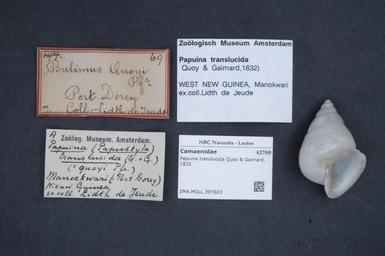 69
Bulimus Quoyi
Pfr
Port Dorey
Coll. Lidth de Jeude
Zoölogisch Museum Amsterdam
Papuina translucida
Quoy & Gaimard, 1832)
WEST NEW GUINEA, Manokwari
ex.coll.Lidth de Jeude
A
Zoölog. Museum. Amsterdam.
Papuina (Papustyla)
translucida (Q.+G.)
(= quoyi Pfr.)
Manokwari (= Port Dorey)
Nieuw Guinea
ex coll. Lidth de Jeude
NBC Naturalis - Leiden
Camaenidae 43700
Papuina translucida Quoy & Gaimard,
1832
ZMA.MOLL.397603